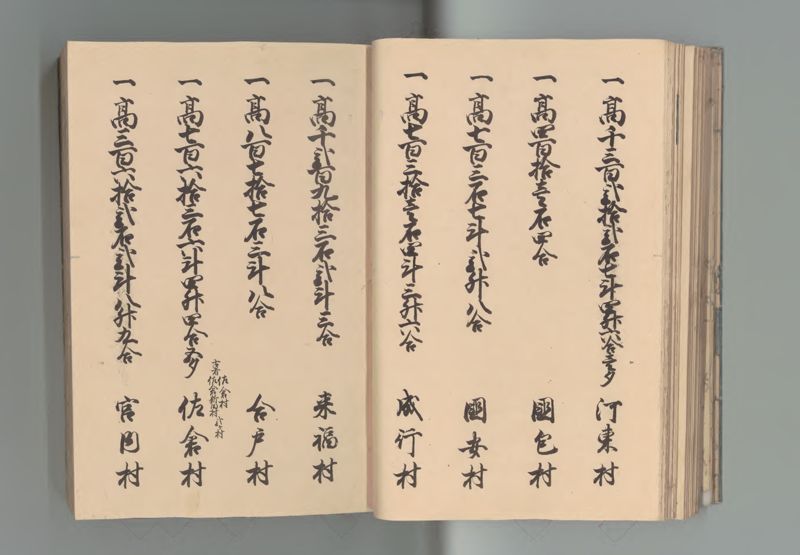 一高千三百弐拾弐石七斗四升六合三夕 河東村
一高四百拾壱石四合 國包村
一高七百三石七斗弐升八合 國安村
一高七百三拾壱石四斗三升六合 成行村
一高千弐百九拾三石弐斗三合 来福村
一高八百七拾七石三斗八合 合戸村
一高七百六拾三石六斗四升四合 佐倉村
古者 佐倉村
佐倉新田村 村
一高三百六拾弐石弐斗八升九合 宮内村